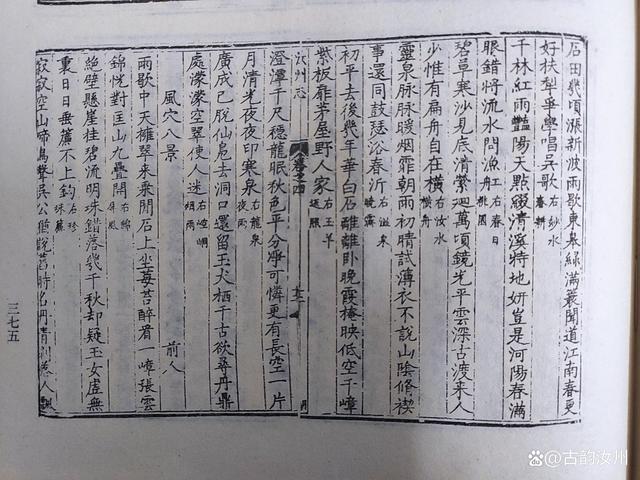 石田幾頃漲新波雨歇東皋綠滿蓑聞道江南春更
好扶犁爭學唱吳歌右紗水春耕
千林紅雨豔陽天點綴清溪特地妍豈是河陽春滿
眼錯將流水問漁舡右春日桃園
碧草寒沙見底清縈迴萬頃鏡光平雲深古渡來人
少惟有扁舟自在橫右汝水橫舟
靈泉脉脉暖烟霏朝雨初晴試薄衣不說山陰脩禊
事還同鼓瑟浴春沂右溫泉曉霽
初平去後幾年華白石離離卧晚霞掩映低空千嶂
紫板扉茅屋野人家右玉羊返照
汝州志
澄潭千尺穩龍眠秋色平分淨可憐更有長空一片
月清光夜夜印寒泉右龍泉夜雨
廣成已脫仙凫去洞口還留玉犬栖千古欲尋丹鼎
處濛濛空翠使人迷右崆峒烟雨
風穴八景 前人
雨歇中天擁翠來乘閒石上坐莓苔醉看一嶂張雲
錦恍對匡山九疊開右錦屏風
絕壁懸崖挂碧流明珠錯落幾千秋却疑玉女虛無
裏日日垂簾不上鈎右珍珠簾
寂寂空山啼鳥聲吳公
舊時名
人
三七五
古韵汝州